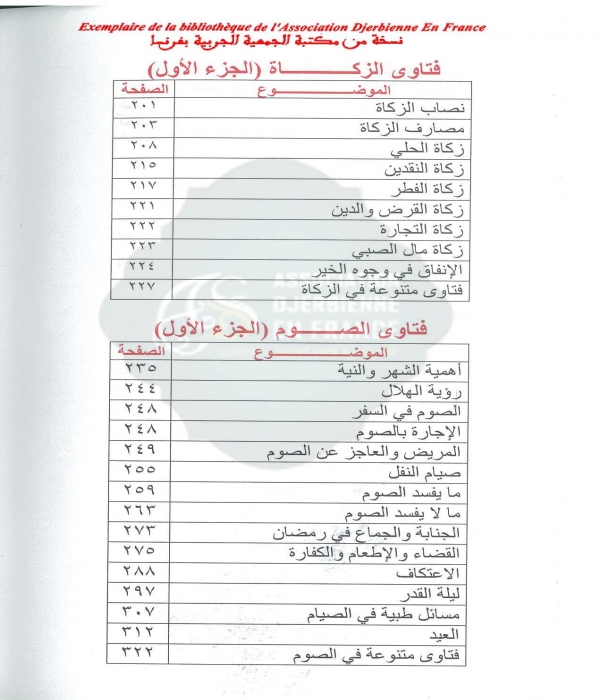 Exemplaire de la bibliothèque de l'Association Djerbienne En France
نسخة من مكتبة الجمعية الجربية بفرنسا
فتاوى الزكـــــاة (الجزء الأول)
الموضـــــوع الصفحة
نصاب الزكاة ٢٠١
مصارف الزكاة ٢٠٣
زكاة الحلي ٢٠٨
زكاة النقدين ٢١٥
زكاة الفطر ٢١٧
زكاة القرض والدين ٢٢١
زكاة التجارة ٢٢٢
زكاة مال الصبي ٢٢٣
الإنفاق في وجوه الخير ٢٢٤
فتاوى متنوعة في الزكاة ٢٢٧
ASSOCIATION
DJERBIENNE
EN FRANCE
فتاوى الصـــوم (الجزء الأول)
الموضـــــوع الصفحة
أهمية الشهر والنية ٢٣٥
رؤية الهلال ٢٤٤
الصوم في السفر ٢٤٨
الإجارة بالصوم ٢٤٨
المريض والعاجز عن الصوم ٢٤٩
صيام النفل ٢٥٥
ما يفسد الصوم ٢٥٩
ما لا يفسد الصوم ٢٦٣
الجنابة والجماع في رمضان ٢٧٣
القضاء والإطعام والكفارة ٢٧٥
الاعتكاف ٢٨٨
ليلة القدر ٢٩٧
مسائل طبية في الصيام ٣٠٧
العيد ٣١٢
فتاوى متنوعة في الصوم ٣٢٢